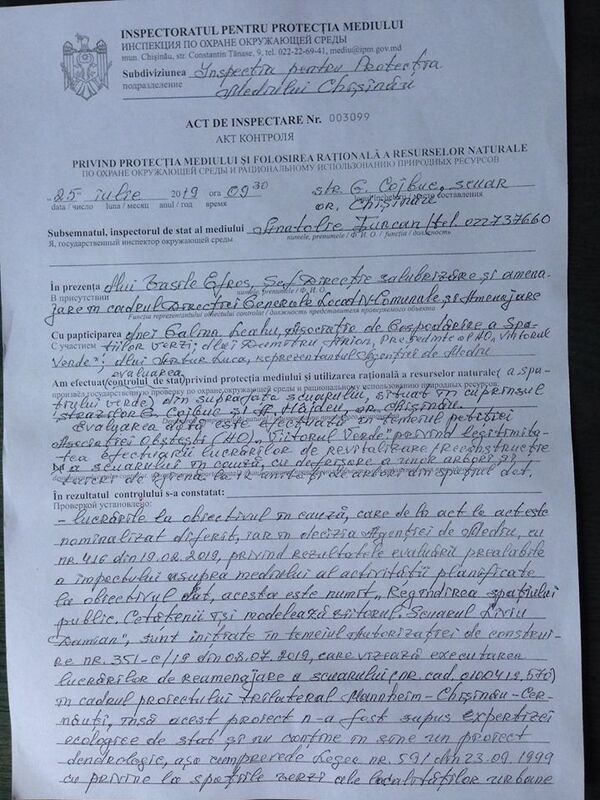 INSPECTORATUL PENTRU PROTECȚIA MEDIULUI
ИНСПЕКЦИЯ ПО ОХРАНЕ ОКРУЖАЮЩЕЙ СРЕДЫ
mun. Chișinău, str. Constantin Tănase, 9, tel. 022-22-69-41, mediu@ipm.gov.md
Subdiviziunea Inspecția pentru Protecția
подразделение
Mediului Chișinău
ACT DE INSPECTARE Nr. 003099
АКТ КОНТРОЛЯ
PRIVIND PROTECȚIA MEDIULUI ȘI FOLOSIREA RAȚIONALĂ A RESURSELOR NATURALE
ПО ОХРАНЕ ОКРУЖАЮЩЕЙ СРЕДЫ И РАЦИОНАЛЬНОМУ ИСПОЛЬЗОВАНИЮ ПРИРОДНЫХ РЕСУРСОВ
"25" iulie 2019 ora 09 30 str. G. Coșbuc, scuar
data / число luna / месяц anul / год время составления
or. Chișinău
Subsemnatul, inspectorul de stat al mediului Anatolie Țurcan / tel. 022737660
Я, государственный инспектор окружающей среды numele, prenumele / Ф. И. О. / funcția / должность
În prezența dlui Vasile Efros, Șef Direcție salubrizare și amena-
В присутствии numele, prenumele / Ф. И. О.
jare în cadrul Direcției Generale Locativ-Comunale și Amenajare
Funcția reprezentantului obiectului controlat / должность представителя проверяемого объекта
Cu papticiparea dnei Galina Asociația de Gospodărire a Spa-
С участием
țiilor Verzi; dlui Dumitru Președinte al AO, "Viitorul
Verde"; dlui Luca, reprezentantul Agenției de Mediu
evaluarea
Am efectuat controlul de stat privind protecția mediului și utilizarea rațională a resurselor naturale (a spa-
произвёл государственную проверку по охране окружающей среды и рациональному использованию природных ресурсов:
țiului verde) din suprafața scuarului, situat în cuprinsul
străzilor G. Coșbuc și A. Hâjdeu, or. Chișinău.
Evaluarea dată este efectuată în temeiul petiției
Asociației Obștești (AO) "Viitorul Verde" privind legitimita-
tea efectuării lucrărilor de revitalizare / reconstrucție
a scuarului în cauză, cu defrișare a unor arbori și
de arbori din spațiul dat.
În rezultatul controlului s-a constatat:
Проверкой установлено:
- lucrările la obiectivul în cauză, care de la act la act este
nominalizat diferit, iar în decizia Agenției de Mediu, cu
nr. 416 din 19.02.2019, privind rezultatele evaluării prealabile
a impactului asupra mediului al activității planificate
la obiectivul dat, acesta este numit, Regîndirea spațiului
public. Cetățenii își modelează viitorul. Scuarul Liviu
Damian", sunt inițiate în temeiul Autorizației de construi-
re nr. 351-c/19 din 08.07.2019, care vizează executarea
lucrărilor de reamenajare a scuarului (nr. cad. 0100412.570)
în cadrul proiectului trilateral Mannheim-Chișinău-Cer-
năuți, însă acest proiect n-a fost supus expertizei
ecologice de stat și nu conține în sine un proiect
dendrologic, așa cum prevede Legea nr. 591 din 23.09.1999
cu privire la spațiile verzi ale localităților urbane